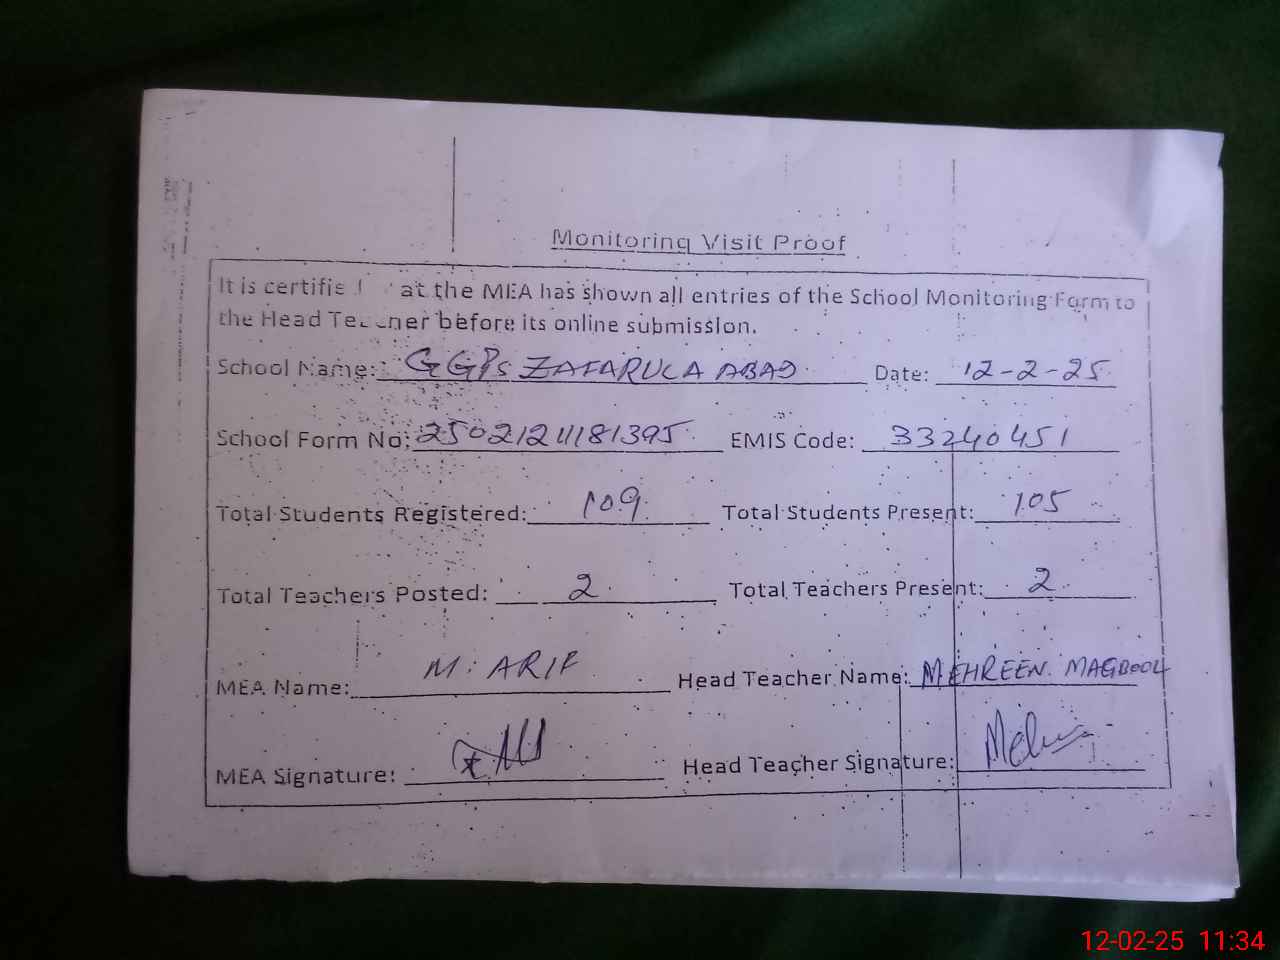 Monitoring Visit Proof
It is certified that the MEA has shown all entries of the School Monitoring Form to
the Head Teacher before its online submission.
School Name: GGPS ZAFARULA ABAD Date: 12-2-25
School Form No: 25021211181395 EMIS Code: 33240451
Total Students Registered: 109 Total Students Present: 105
Total Teachers Posted: 2 Total Teachers Present: 2
MEA Name: M. ARIF Head Teacher Name: MEHREEN MAQBOOL
MEA Signature: Head Teacher Signature:
12-02-25 11:34